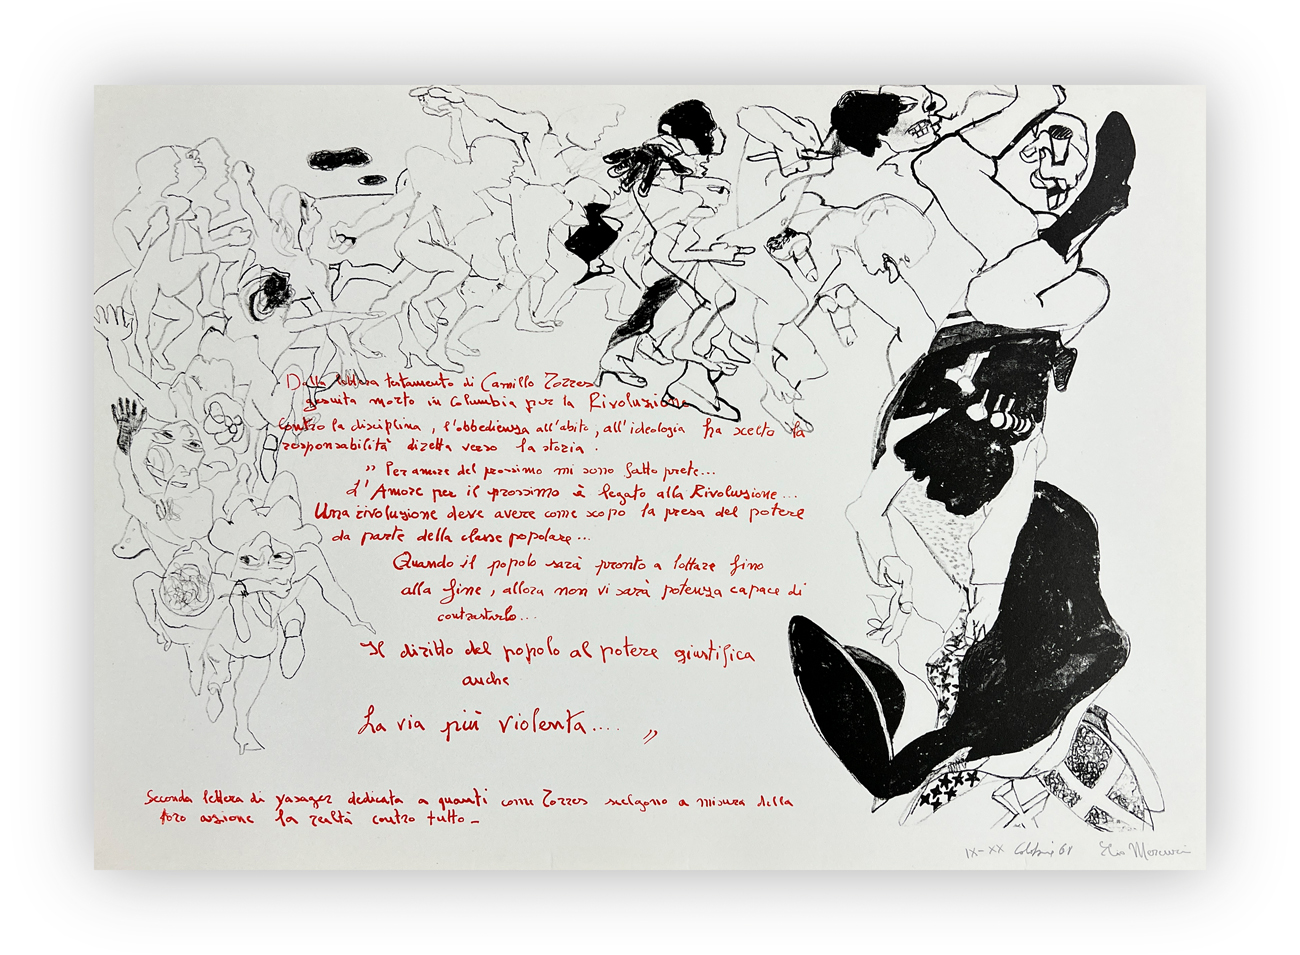 Dalla lettera testamento di Camillo Torres
gesuita morto in Columbia per la Rivoluzione
contro la disciplina, l'obbedienza all'abito, all'ideologia ha scelto la
responsabilità diretta verso la storia.
" Per amore del prossimo mi sono fatto prete...
L'Amore per il prossimo è legato alla Rivoluzione...
Una rivoluzione deve avere come scopo la presa del potere
da parte della classe popolare...
Quando il popolo sarà pronto a lottare fino
alla fine, allora non vi sarà potenza capace di
contrastarlo...
Il diritto del popolo al potere giustifica
anche
La via più violenta.... "
Seconda lettera di dedicata a quanti come Torres scelgono a misura della
loro azione la realtà contro tutto -
IX-XX Elio Mercuri